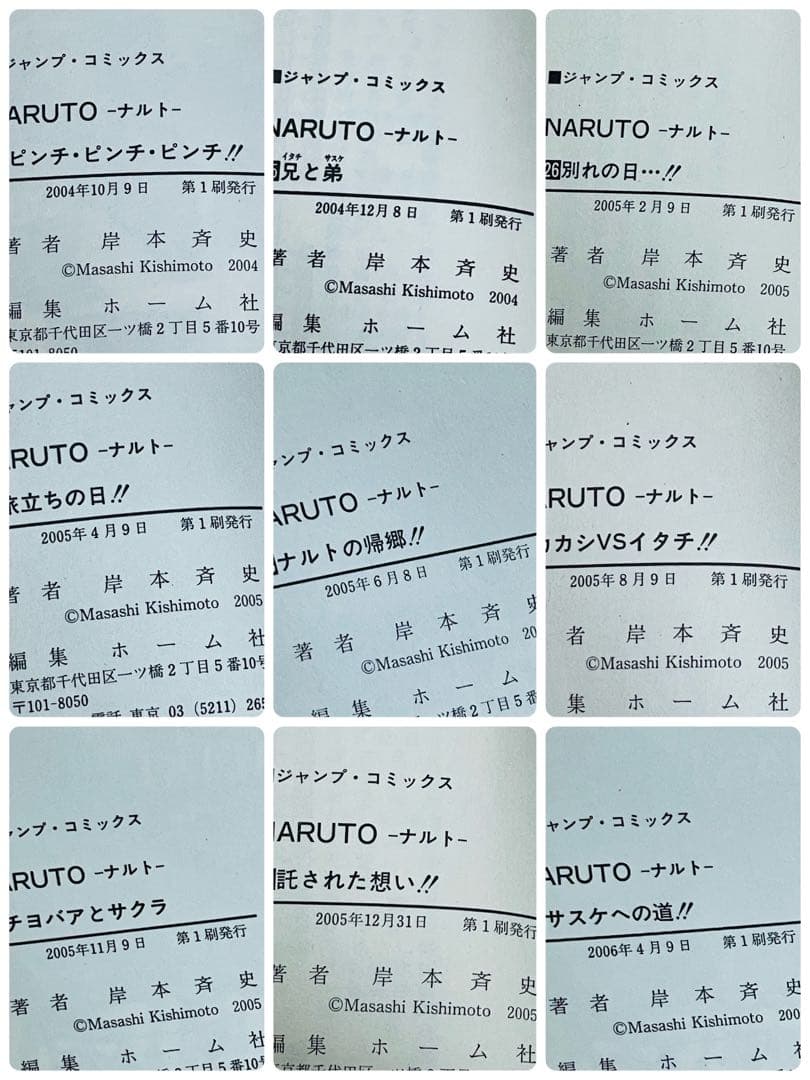 ジャンプ・コミックス
ARUTO -ナルト-
ピンチ・ピンチ・ピンチ!!
2004年10月9日 第1刷発行
著者 岸本斉史
©Masashi Kishimoto 2004
編集 ホーム社
東京都千代田区一ツ橋2丁目5番10号
〒101-8050
■ジャンプ・コミックス
NARUTO -ナルト-
兄と弟
イタチ サスケ
2004年12月8日 第1刷発行
著者 岸本斉史
©Masashi Kishimoto 2004
編集 ホーム社
東京都千代田区一ツ橋2丁目5番10号
■ジャンプ・コミックス
NARUTO -ナルト-
26別れの日…!!
2005年2月9日 第1刷発行
著者 岸本斉史
©Masashi Kishimoto 2005
編集 ホーム社
東京都千代田区一ツ橋2丁目5番10号
ャンプ・コミックス
RUTO -ナルト-
旅立ちの日!!
2005年4月9日 第1刷発行
著者 岸本斉史
©Masashi Kishimoto 2005
編集 ホーム社
東京都千代田区一ツ橋2丁目5番10号
〒101-8050
電話 東京 03 (5211) 265
ャンプ・コミックス
ARUTO -ナルト-
ナルトの帰郷!!
2005年6月8日 第1刷発行
著者 岸本斉史
©Masashi Kishimoto 20
編集 ホーム
ツ橋2丁目5番
ャンプ・コミックス
ARUTO -ナルト-
カカシVSイタチ!!
2005年8月9日 第1刷発行
者 岸本斉史
©Masashi Kishimoto 2005
集 ホーム社
ャンプ・コミックス
ARUTO -ナルト-
チヨバアとサクラ
2005年11月9日 第1刷発行
著者 岸本斉史
©Masashi Kishimoto 2005
編集 ホーム社
ジャンプ・コミックス
NARUTO -ナルト-
託された想い!!
2005年12月31日 第1刷発行
著者 岸本斉史
©Masashi Kishimoto 2005
編集 ホーム社
ャンプ・コミックス
ARUTO -ナルト-
サスケへの道!!
2006年4月9日 第1刷発行
著者 岸本斉史
©Masashi Kishimoto 200
編集 ホーム社